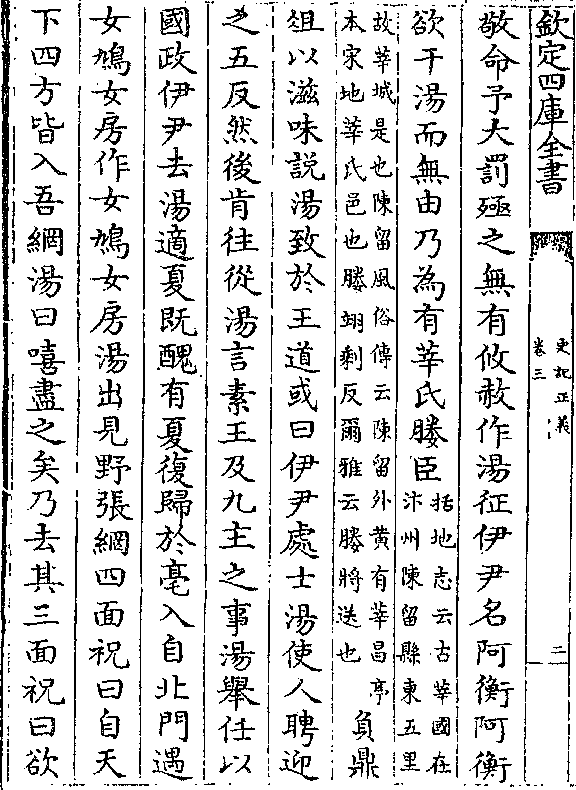 欽定四庫全書
史記正義
卷三
二
敬命予大罰殛之無有攸赦作湯征伊尹名阿衡阿衡
欲干湯而無由乃為有莘氏媵臣
括地志云古莘國在
汴州陳留縣東五里
故莘城是也陳留風俗傳云陳留外黄有莘昌亭
本宋地莘氏邑也媵翊剩反爾雅云媵將送也
負鼎
俎以滋味説湯致於王道或曰伊尹處士湯使人聘迎
之五反然後肯往從湯言素王及九主之事湯舉任以
國政伊尹去湯適夏既醜有夏復歸於亳入自北門遇
女鳩女房作女鳩女房湯出見野張網四面祝曰自天
下四方皆入吾網湯曰嘻盡之矣乃去其三面祝曰欲